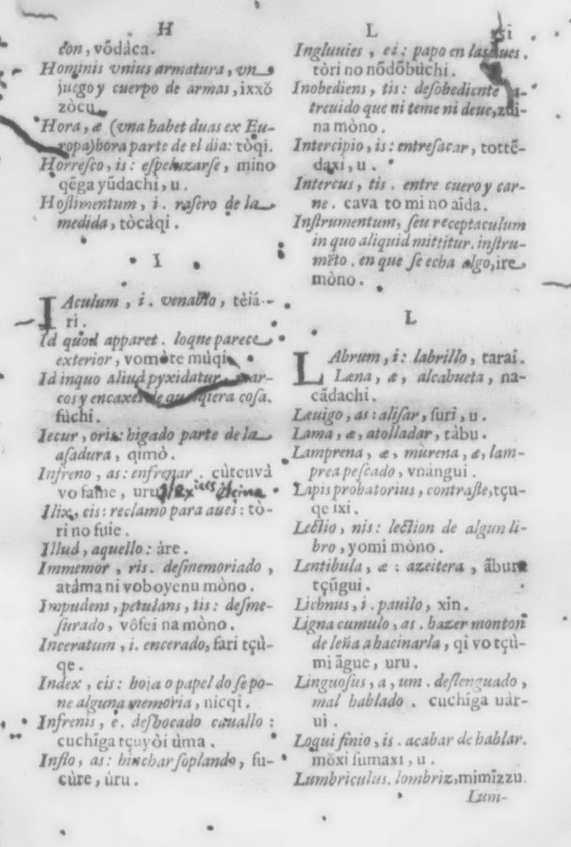 H
con, vōdàca.
Hominis vnius armatura, vn
juego y cuerpo de armas, ixxŏ
zòcu
Hora, æ (vna habet duas ex Eu-
ropa) hora parte de el dia: tòqi.
Horresco, is: espeluzarse, mino
qēga yūdachi, u.
Hostimentum, i. rasero de la
medida, tòcàqi.
I
IAculum, i. venablo, tèiá-
ri.
Id quod apparet. loque parece
exterior, vomote mùqi.
Id in quo aliud pyxidatur,
cos y encaxes de qualquiera cosa.
fùchi.
Iecur, oris: higado parte de la
asadura, qimò.
Infreno, as: enfrenar. cùtcuvà
vo fame, uru
Ilix, cis: reclamo para aues: tò-
ri no fuie.
Illud, aquello: àre.
Immemor, ris. desmemoriado,
atàma ni voboyenu mòno.
Impudens, petulans, tis: desme-
surado, vòfei na mòno.
Inceratum, i. encerado, fari tçù-
qe.
Index, cis: hoja o papel do se po-
ne alguna memoria, nicqi.
Infrenis, e. desbocado cauallo:
cuchīga tçuyòi ùma.
Inflo, as: hinchar soplando, fu-
cùre, ùru.
L
Ingluuies, ei: papo en las aues.
tòri no nōdōbùchi.
Inobediens, tis: desobediente
treuido que ni teme ni deue, zùi-
na mòno.
Intercipio, is: entresacar, tottē-
daxi, u.
Intercus, tis. entre cuero y car-
ne. cava to mi no aīda.
Instrumentum, seu receptaculum
in quo aliquid mittitur. instru-
mēto. en que se echa algo, ire
mòno.
L
LAbrum, i: labrillo, tarai.
Læna, æ, alcahueta, na-
cādachi.
Læuigo, as: alisar, suri, u.
Lama, æ, atolladar, tàbu.
Lamprena, æ, murena, æ, lam-
prea pescado, vnàngui.
Lapis probatorius, contraste, tçu-
qe ixi.
Lectio, nis: lection de algun li-
bro, yomi mòno.
Lentibula, æ: azeitera, àbura
tçūgui.
Lichnus, i. pauilo, xìn.
Ligna cumulo, as. hazer monton
de leña ahacinarla, qi vo tçù-
mi āgue, uru.
Linguosus, a, um. deslenguado,
mal hablado. cuchīga uàr-
ui.
Loqui finio, is. acabar de hablar.
mōxi fumaxi, u.
Lumbriculus. lombriz, mimizzu.
Lum-